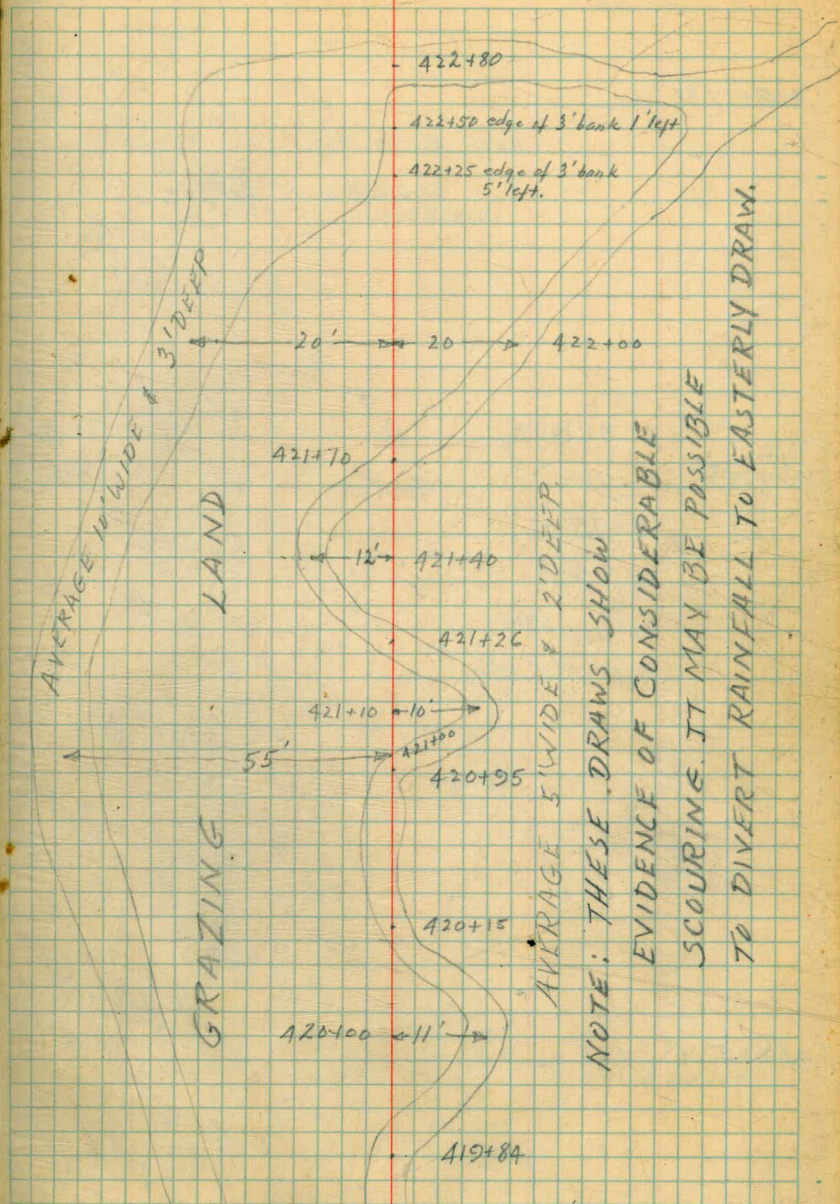 422+80
422+50 edge of 3' bank 1' left
422+25 edge of 3' bank
5' left.
20' 20 422+00
421+70
12' 421+40
421+26
421+10 10'
421+00
55'
420+95
420+15
420+00 11'
419+84
AVERAGE 10' WIDE & 3' DEEP
GRAZING LAND
AVERAGE 5' WIDE & 2' DEEP
NOTE: THESE DRAWS SHOW
EVIDENCE OF CONSIDERABLE
SCOURING. IT MAY BE POSSIBLE
TO DIVERT RAINFALL TO EASTERLY DRAW.